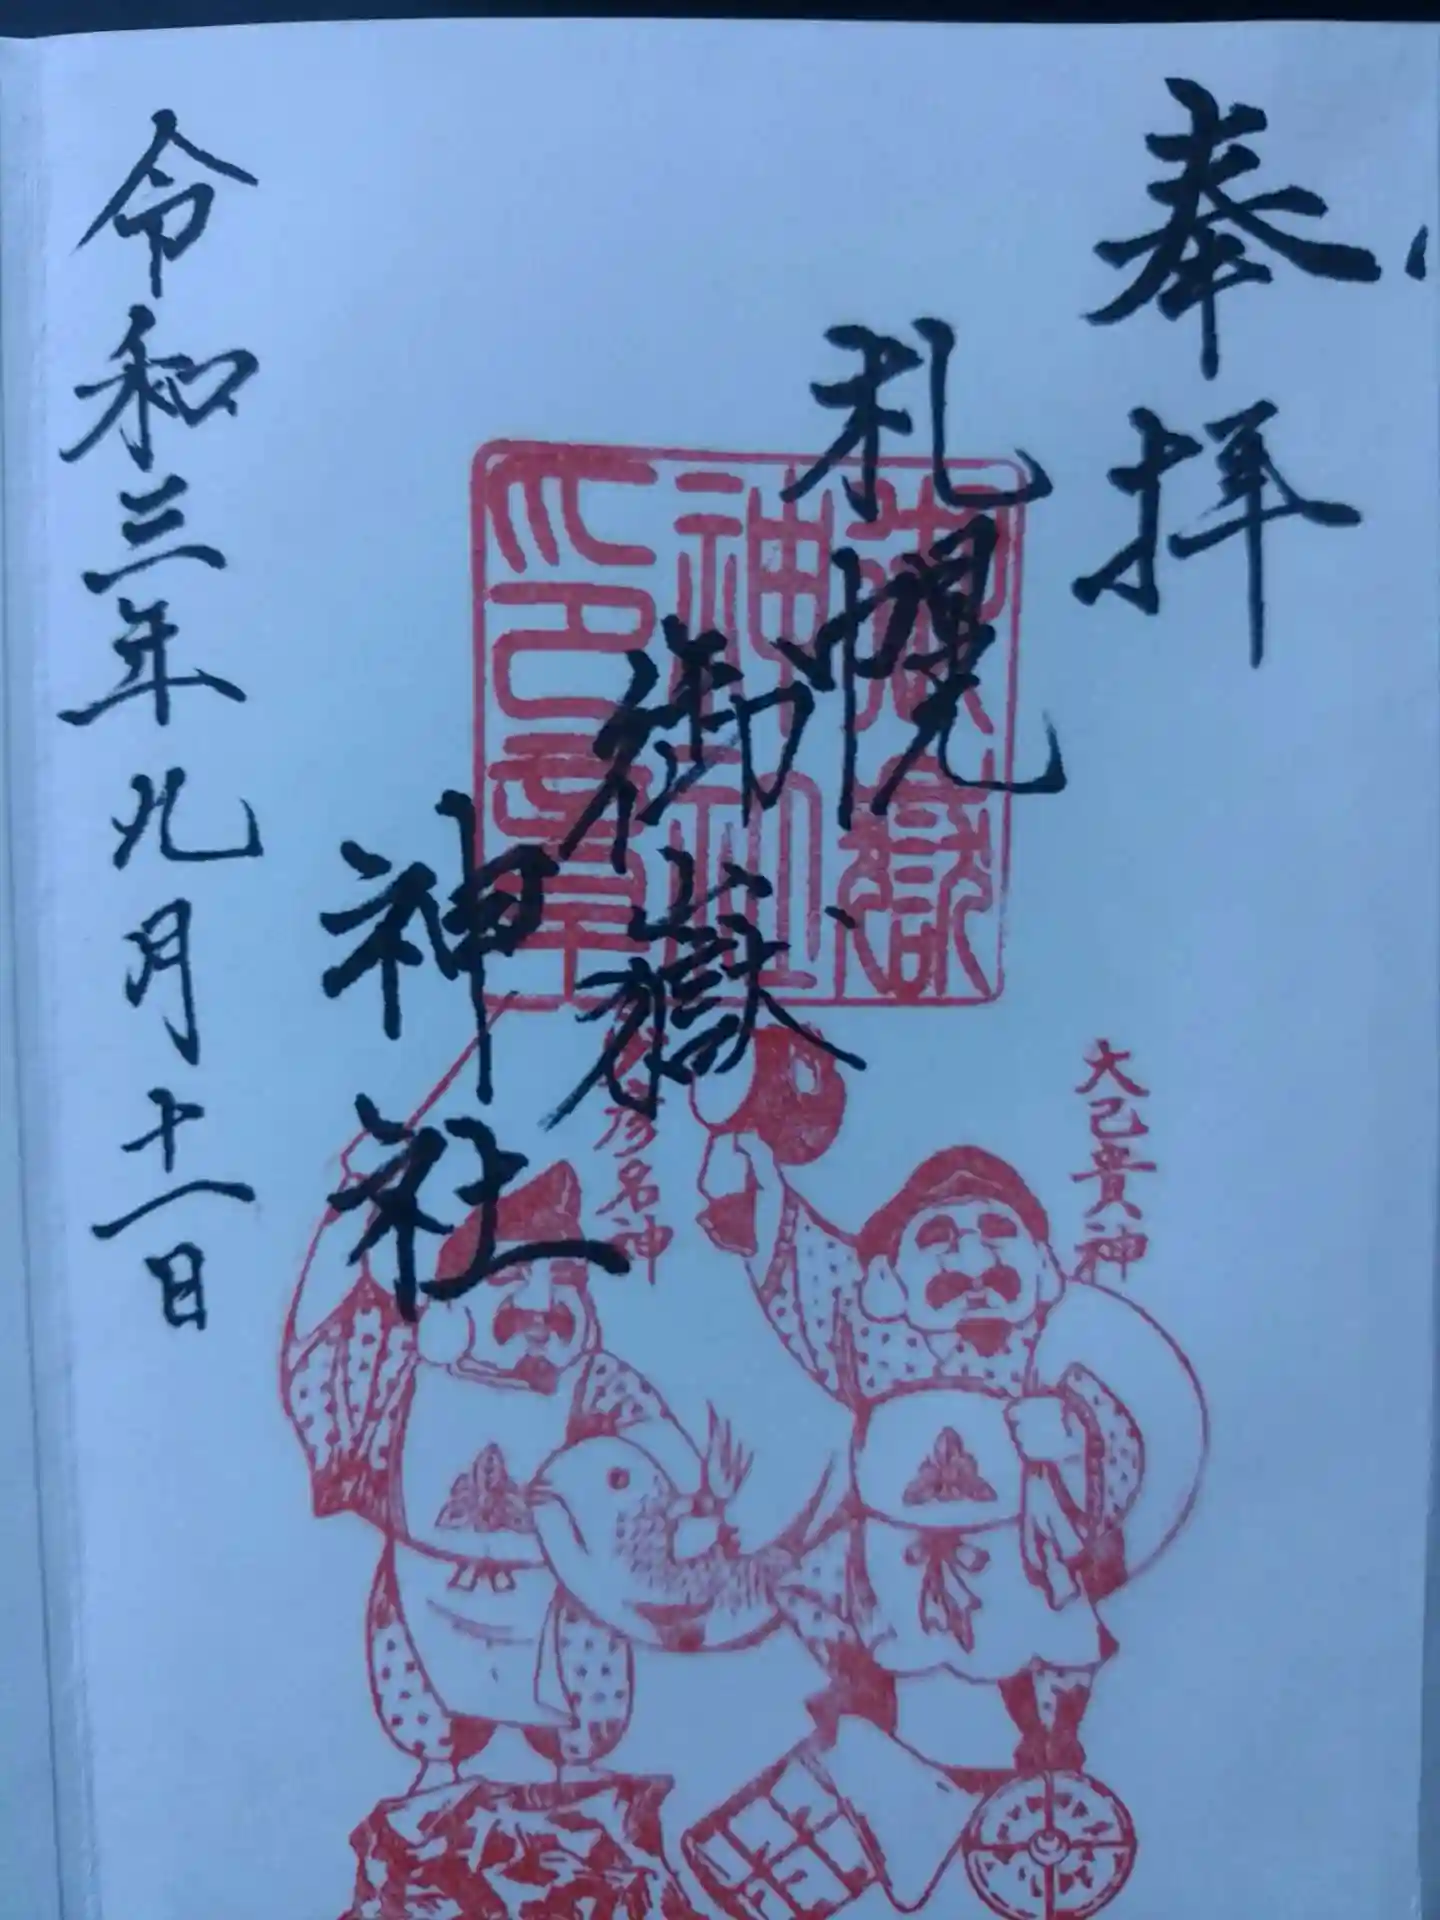 奉拝
札幌
御嶽
神社
御嶽
神社
印章
大己貴神
彦名神
令和三年九月十八日